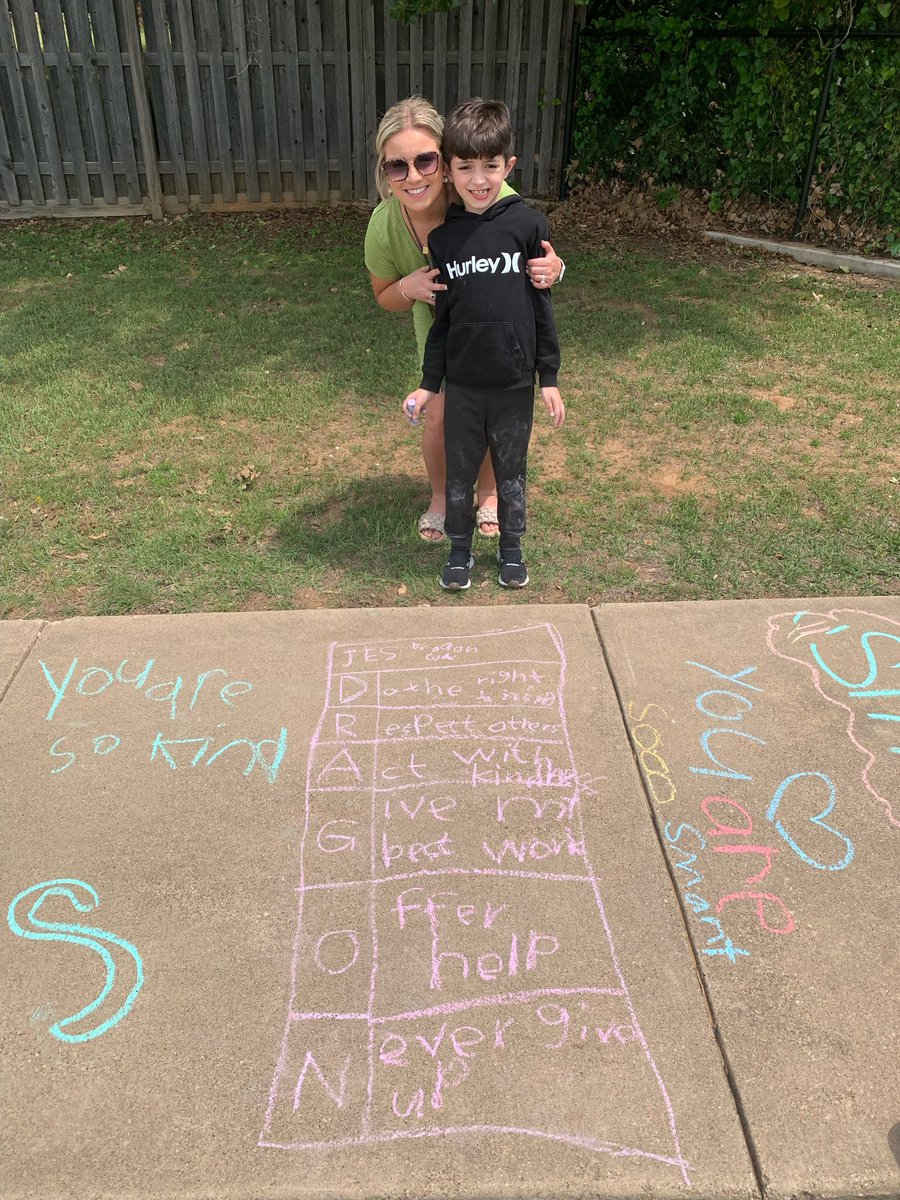 Hurley
You are
so kind
S
JES Dragon
code
D o the right
thing
R espect others
A ct with
kindness
G ive my
best work
O ffer
help
N ever give
up
you are
sooo smart